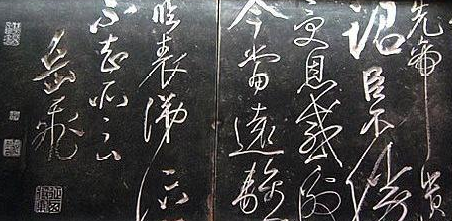 先帝遺
詔臣不勝
受恩感激
今當遠離
臨表涕泣
不知所云
岳飛